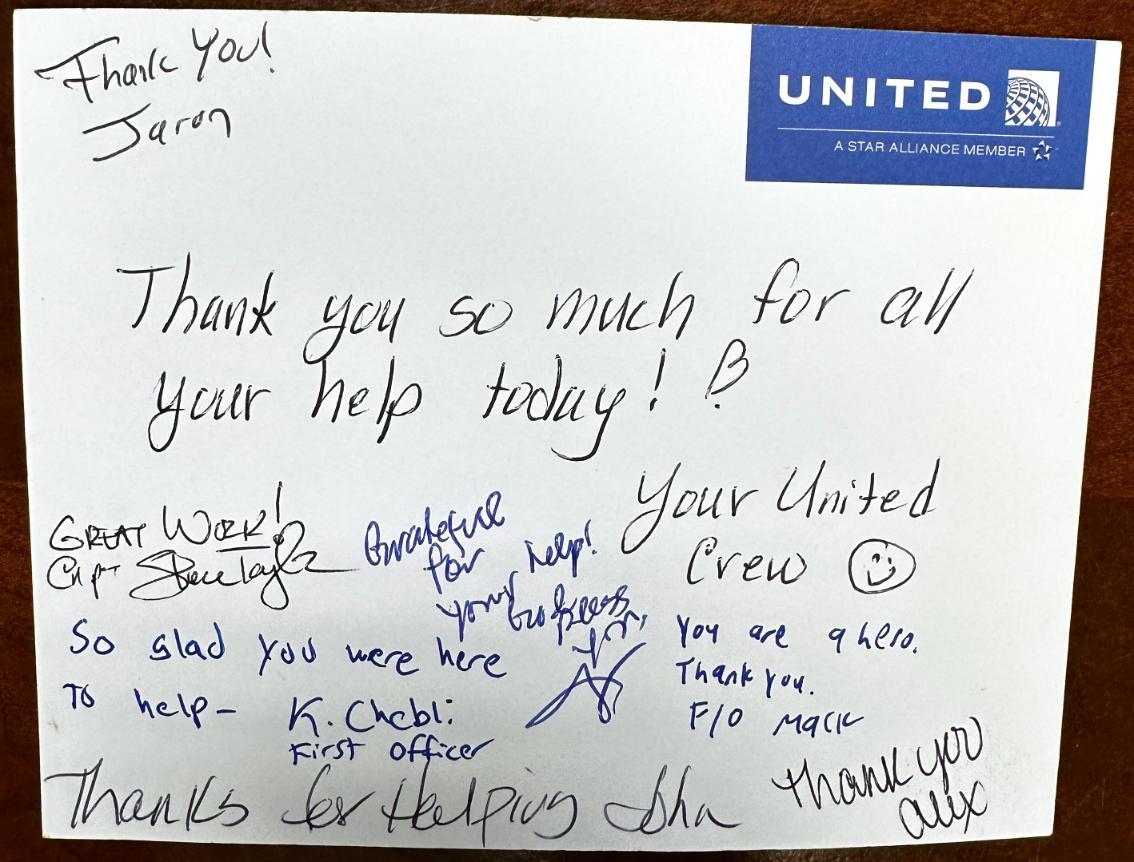 Thank you!
Jaron
UNITED
A STAR ALLIANCE MEMBER
Thank you so much for all
your help today!
Your United
Crew
GREAT WORK!
Capt
Grateful
for
your help!
So glad you were here
To help- K. Chebli
First officer
You are a hero.
Thank you.
F/O Mack
Thanks for Helping John
Thank you
alex